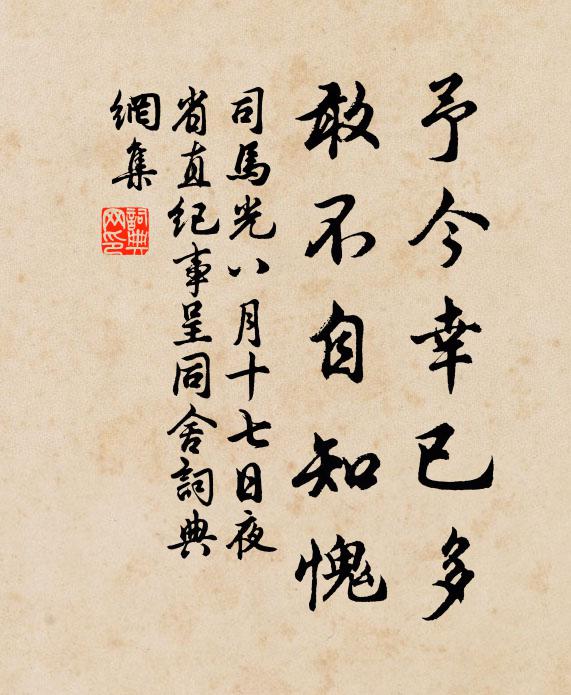 予今幸已多
敢不自知愧
司馬光八月十七日夜
省直紀事呈同舍詞典
網集
詞典网印